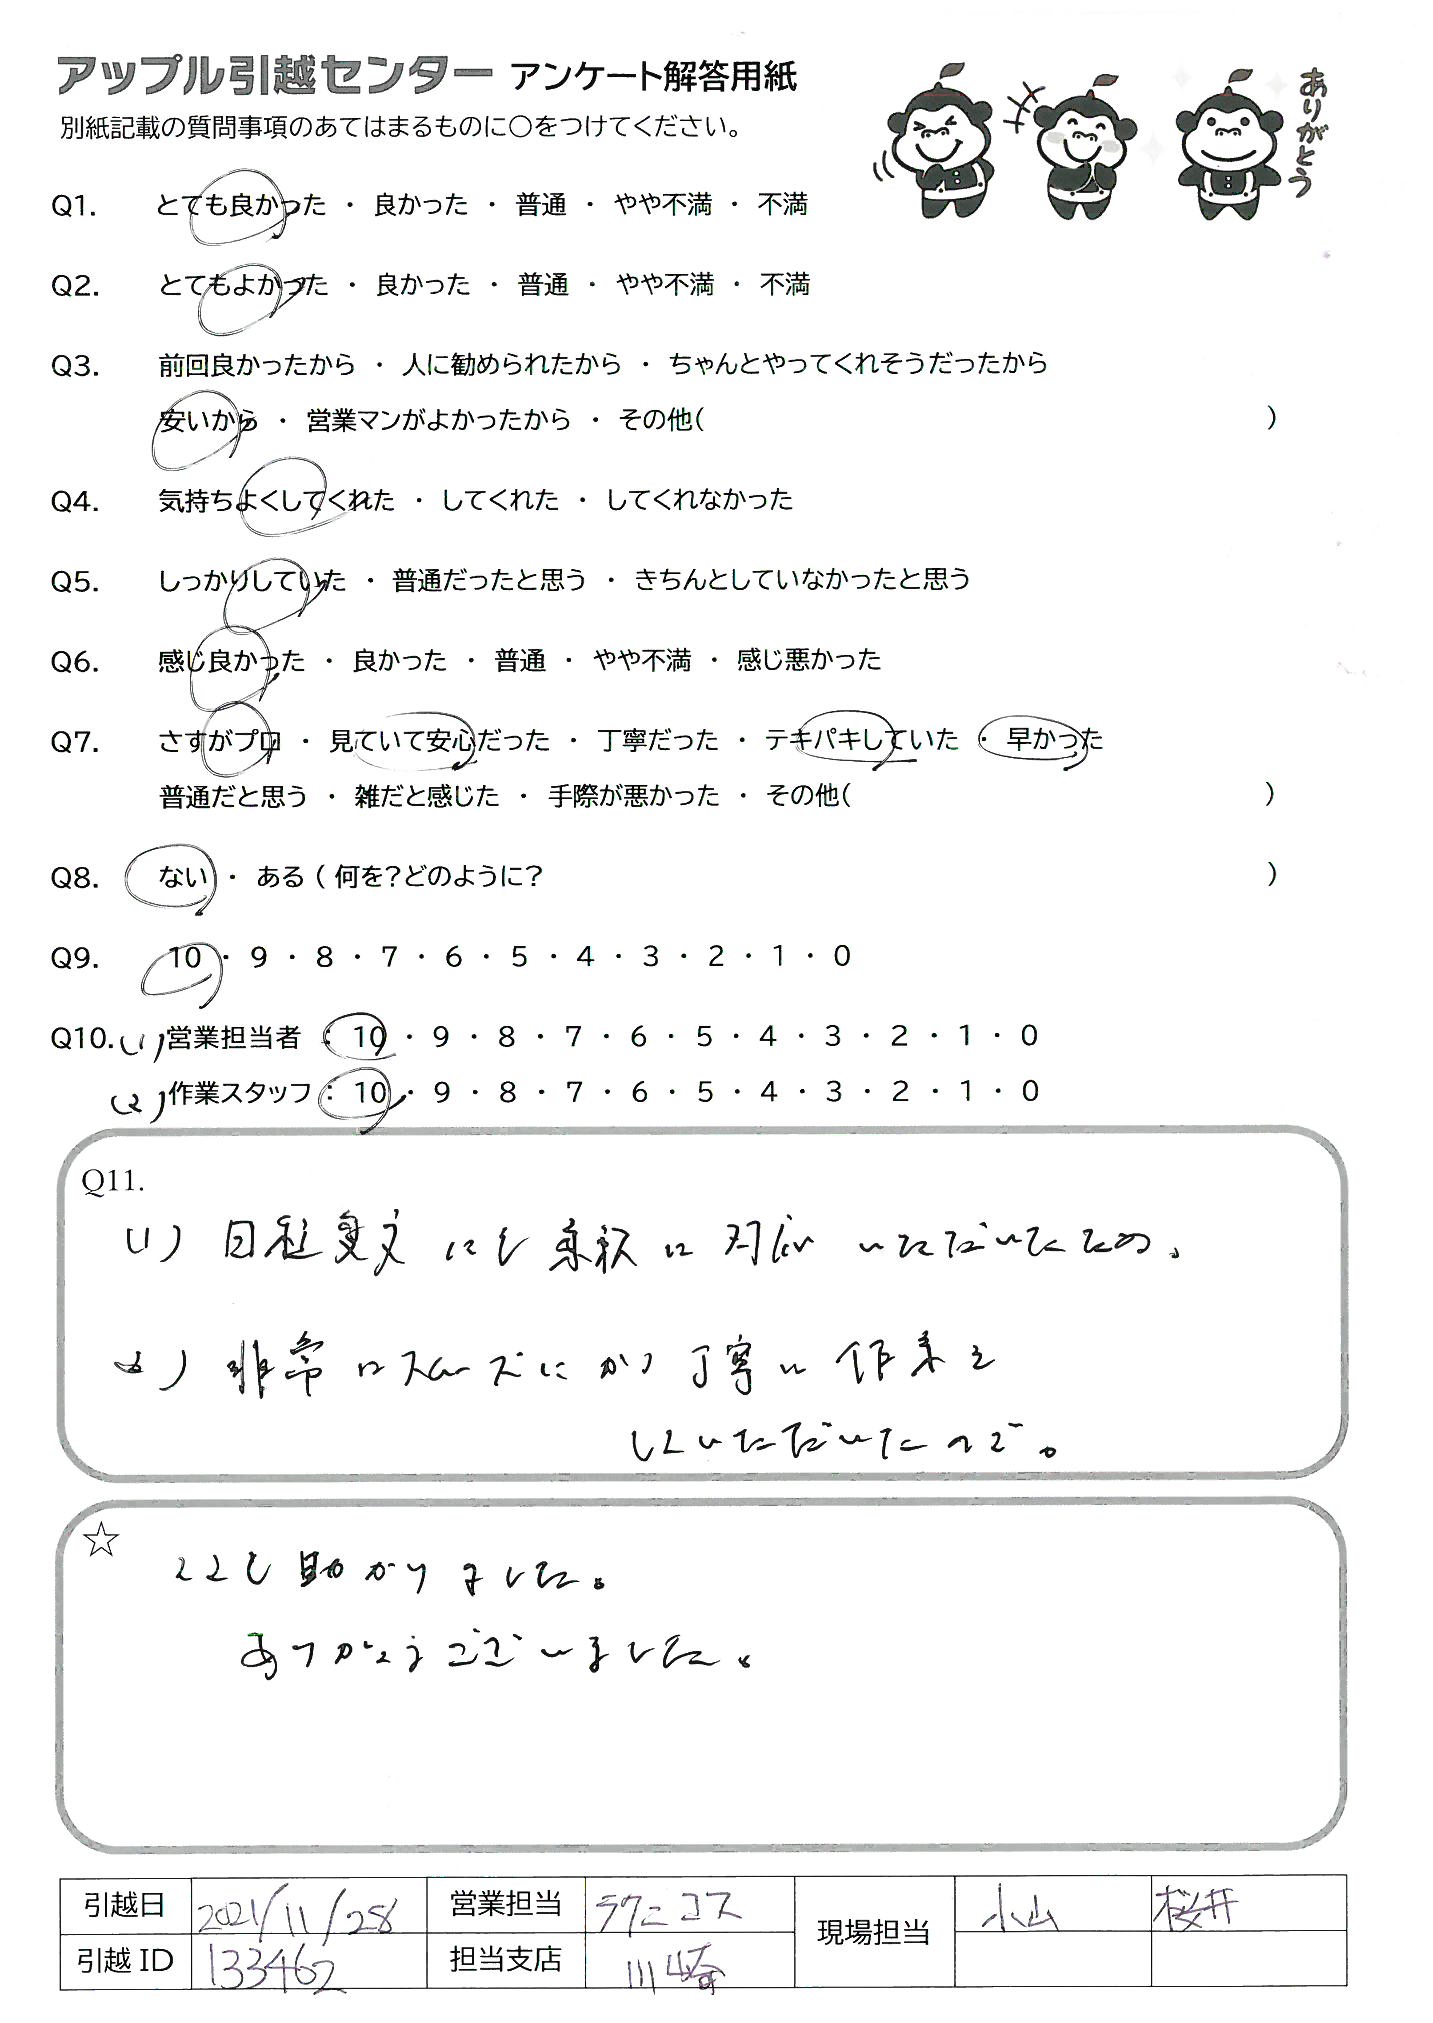 アップル引越センター アンケート解答用紙
別紙記載の質問事項のあてはまるものに○をつけてください。
ありがとう
Q1. とても良かった ・ 良かった ・ 普通 ・ やや不満 ・ 不満
Q2. とてもよかった ・ 良かった ・ 普通 ・ やや不満 ・ 不満
Q3. 前回良かったから ・ 人に勧められたから ・ ちゃんとやってくれそうだったから
安いから ・ 営業マンがよかったから ・ その他( )
Q4. 気持ちよくしてくれた ・ してくれた ・ してくれなかった
Q5. しっかりしていた ・ 普通だったと思う ・ きちんとしていなかったと思う
Q6. 感じ良かった ・ 良かった ・ 普通 ・ やや不満 ・ 感じ悪かった
Q7. さすがプロ ・ 見ていて安心だった ・ 丁寧だった ・ テキパキしていた ・ 早かった
普通だと思う ・ 雑だと感じた ・ 手際が悪かった ・ その他( )
Q8. ない ・ ある ( 何を?どのように? )
Q9. 10 ・ 9 ・ 8 ・ 7 ・ 6 ・ 5 ・ 4 ・ 3 ・ 2 ・ 1 ・ 0
Q10. (1) 営業担当者 : 10 ・ 9 ・ 8 ・ 7 ・ 6 ・ 5 ・ 4 ・ 3 ・ 2 ・ 1 ・ 0
(2) 作業スタッフ : 10 ・ 9 ・ 8 ・ 7 ・ 6 ・ 5 ・ 4 ・ 3 ・ 2 ・ 1 ・ 0
Q11.
(1) 日程変更にも柔軟に対応いただいたため。
(2) 非常にスムーズにかつ丁寧に作業を
していただいたので。
☆ とても助かりました。
ありがとうございました。
引越日 2021/11/28 営業担当 ラクニコス 現場担当 小山 桜井
引越 ID 133462 担当支店 川崎